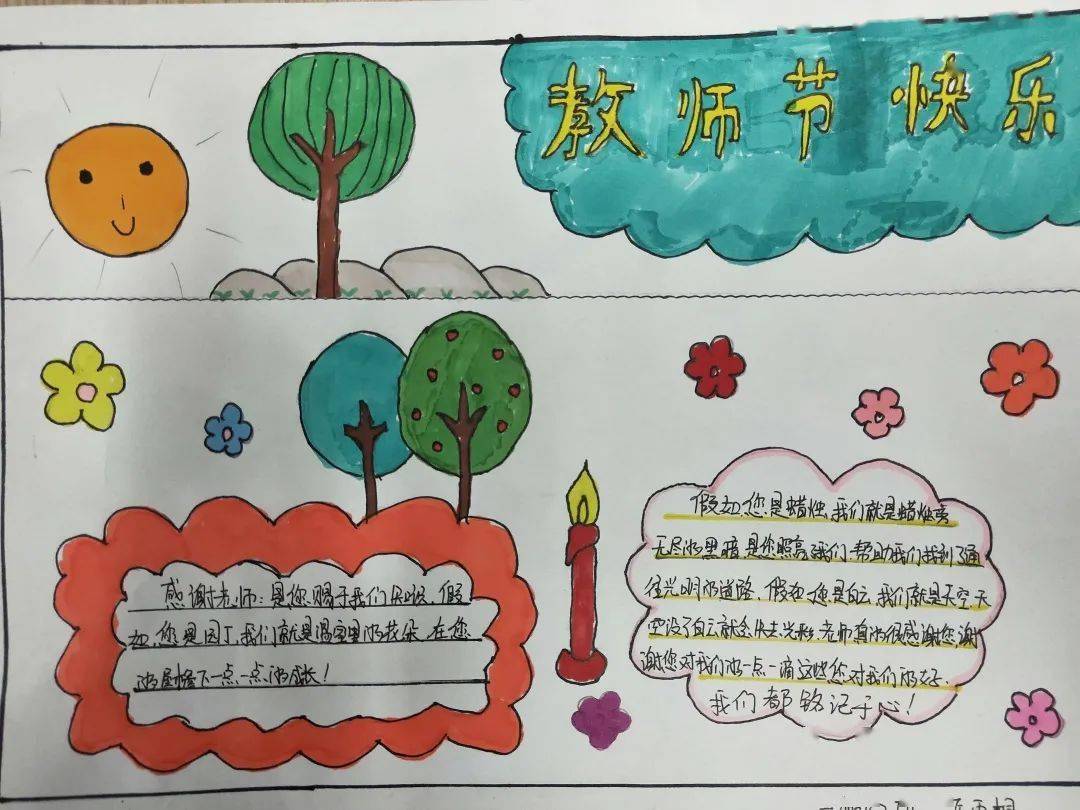 教师节快乐
感谢老师：是您赐于我们 假
如您是园丁，我们就是温室里的花朵，在您
的 下一点一点的成长！
假如您是蜡烛，我们就是蜡烛
无尽的黑暗是您照亮我们，帮助我们找到了通
往光明的道路，假如您是白云，我们就是天空，天
空没了白云就会失去光彩，老师真的很感谢您，谢
谢您对我们的一点一滴这些您对我们的好，
我们都铭记于心！